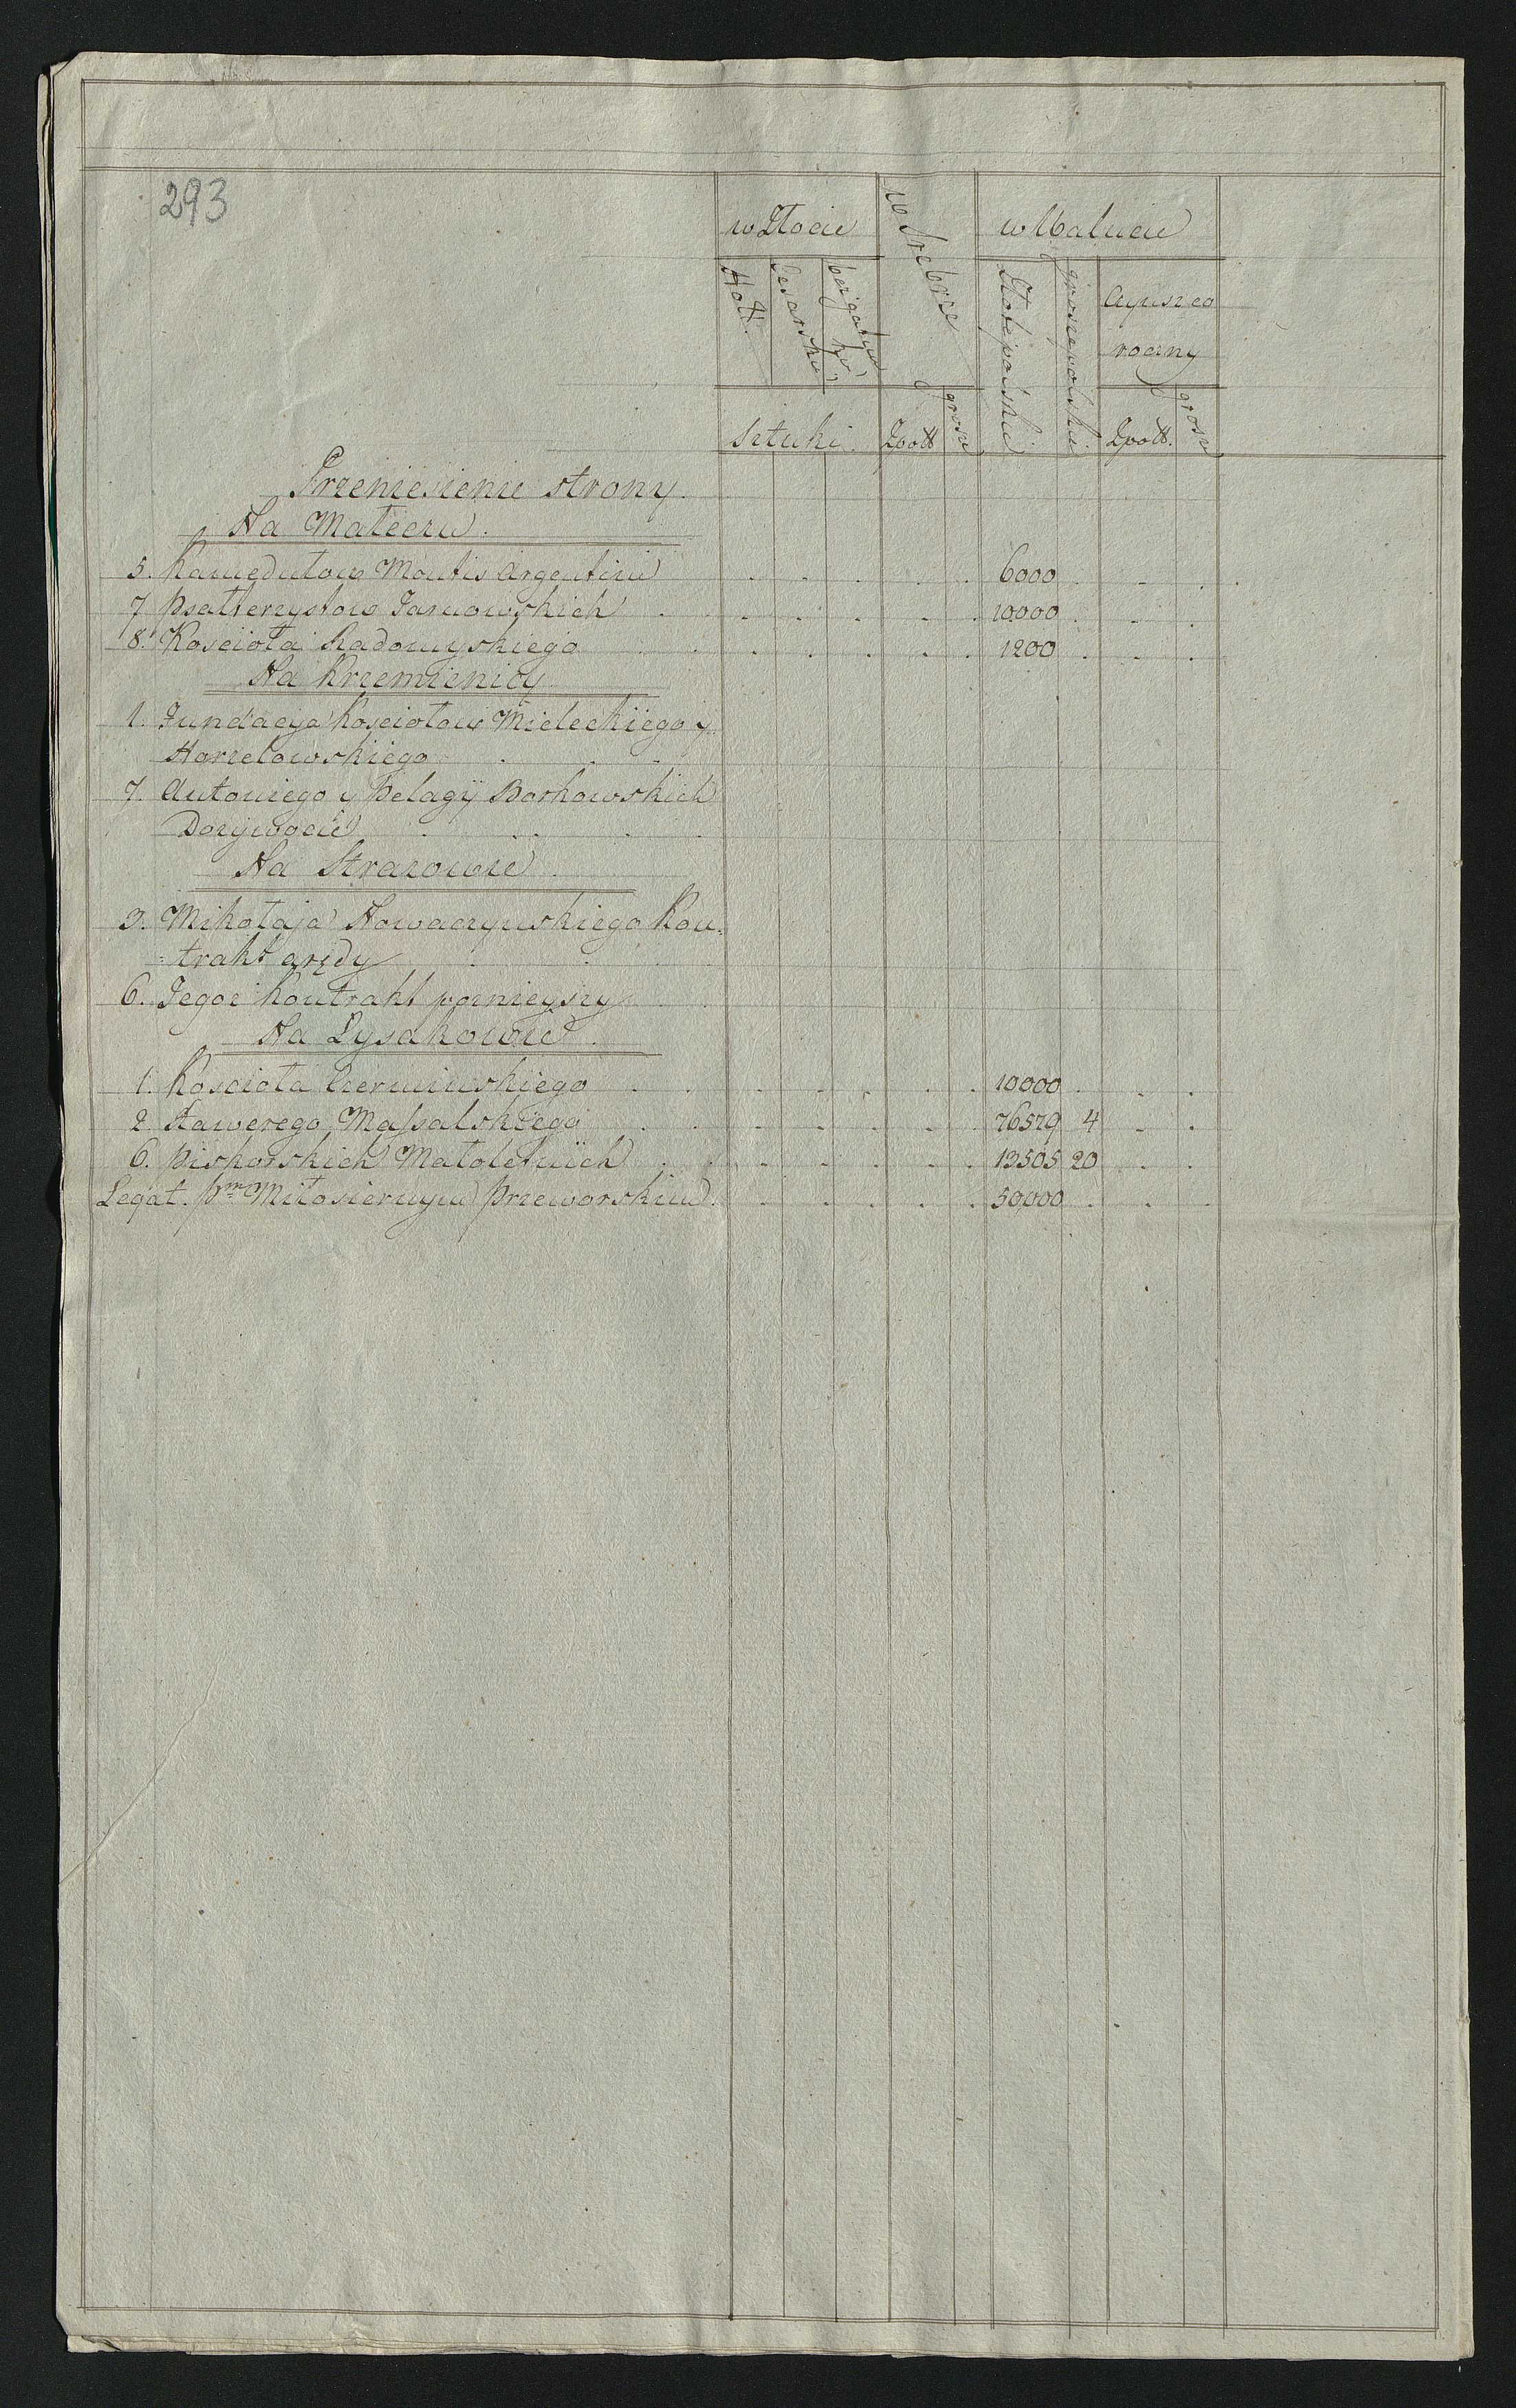 293
w Złocie
w Srebrze
w Walucie
Holl.
Cesarskie
Złote polskie
grosze polskie
Czynsz co
roczny
Sztuki
Zpoll
grosze
Zpoll.
grosze
Przeniesienie strony.
Na Mateczu.
5. Kamedułow Montis Argentini 6000
7. Psałterzystow Tarnowskich 10000
8. Kościoła Radomyskiego 1200
Na Krzemienicy
1. Fundacya Kościołow Mieleckiego y
Horzelowskiego
7. Antoniego y Pelagÿ Borkowskich
Dożywocie
Na Strazowie
3. Mikołaja Nowaczynskiego Kon=
=trakt arędy
6. Tegoż Kontrakt poznieyszy
Na Łysakowie.
1. Kościoła Czerminskiego 10000
2. Xawerego Massalskiego 76579 4
6. Piskorskich Małoletnich 13505 20
Legat. Pm Miłosiernym Przeworskim 50,000